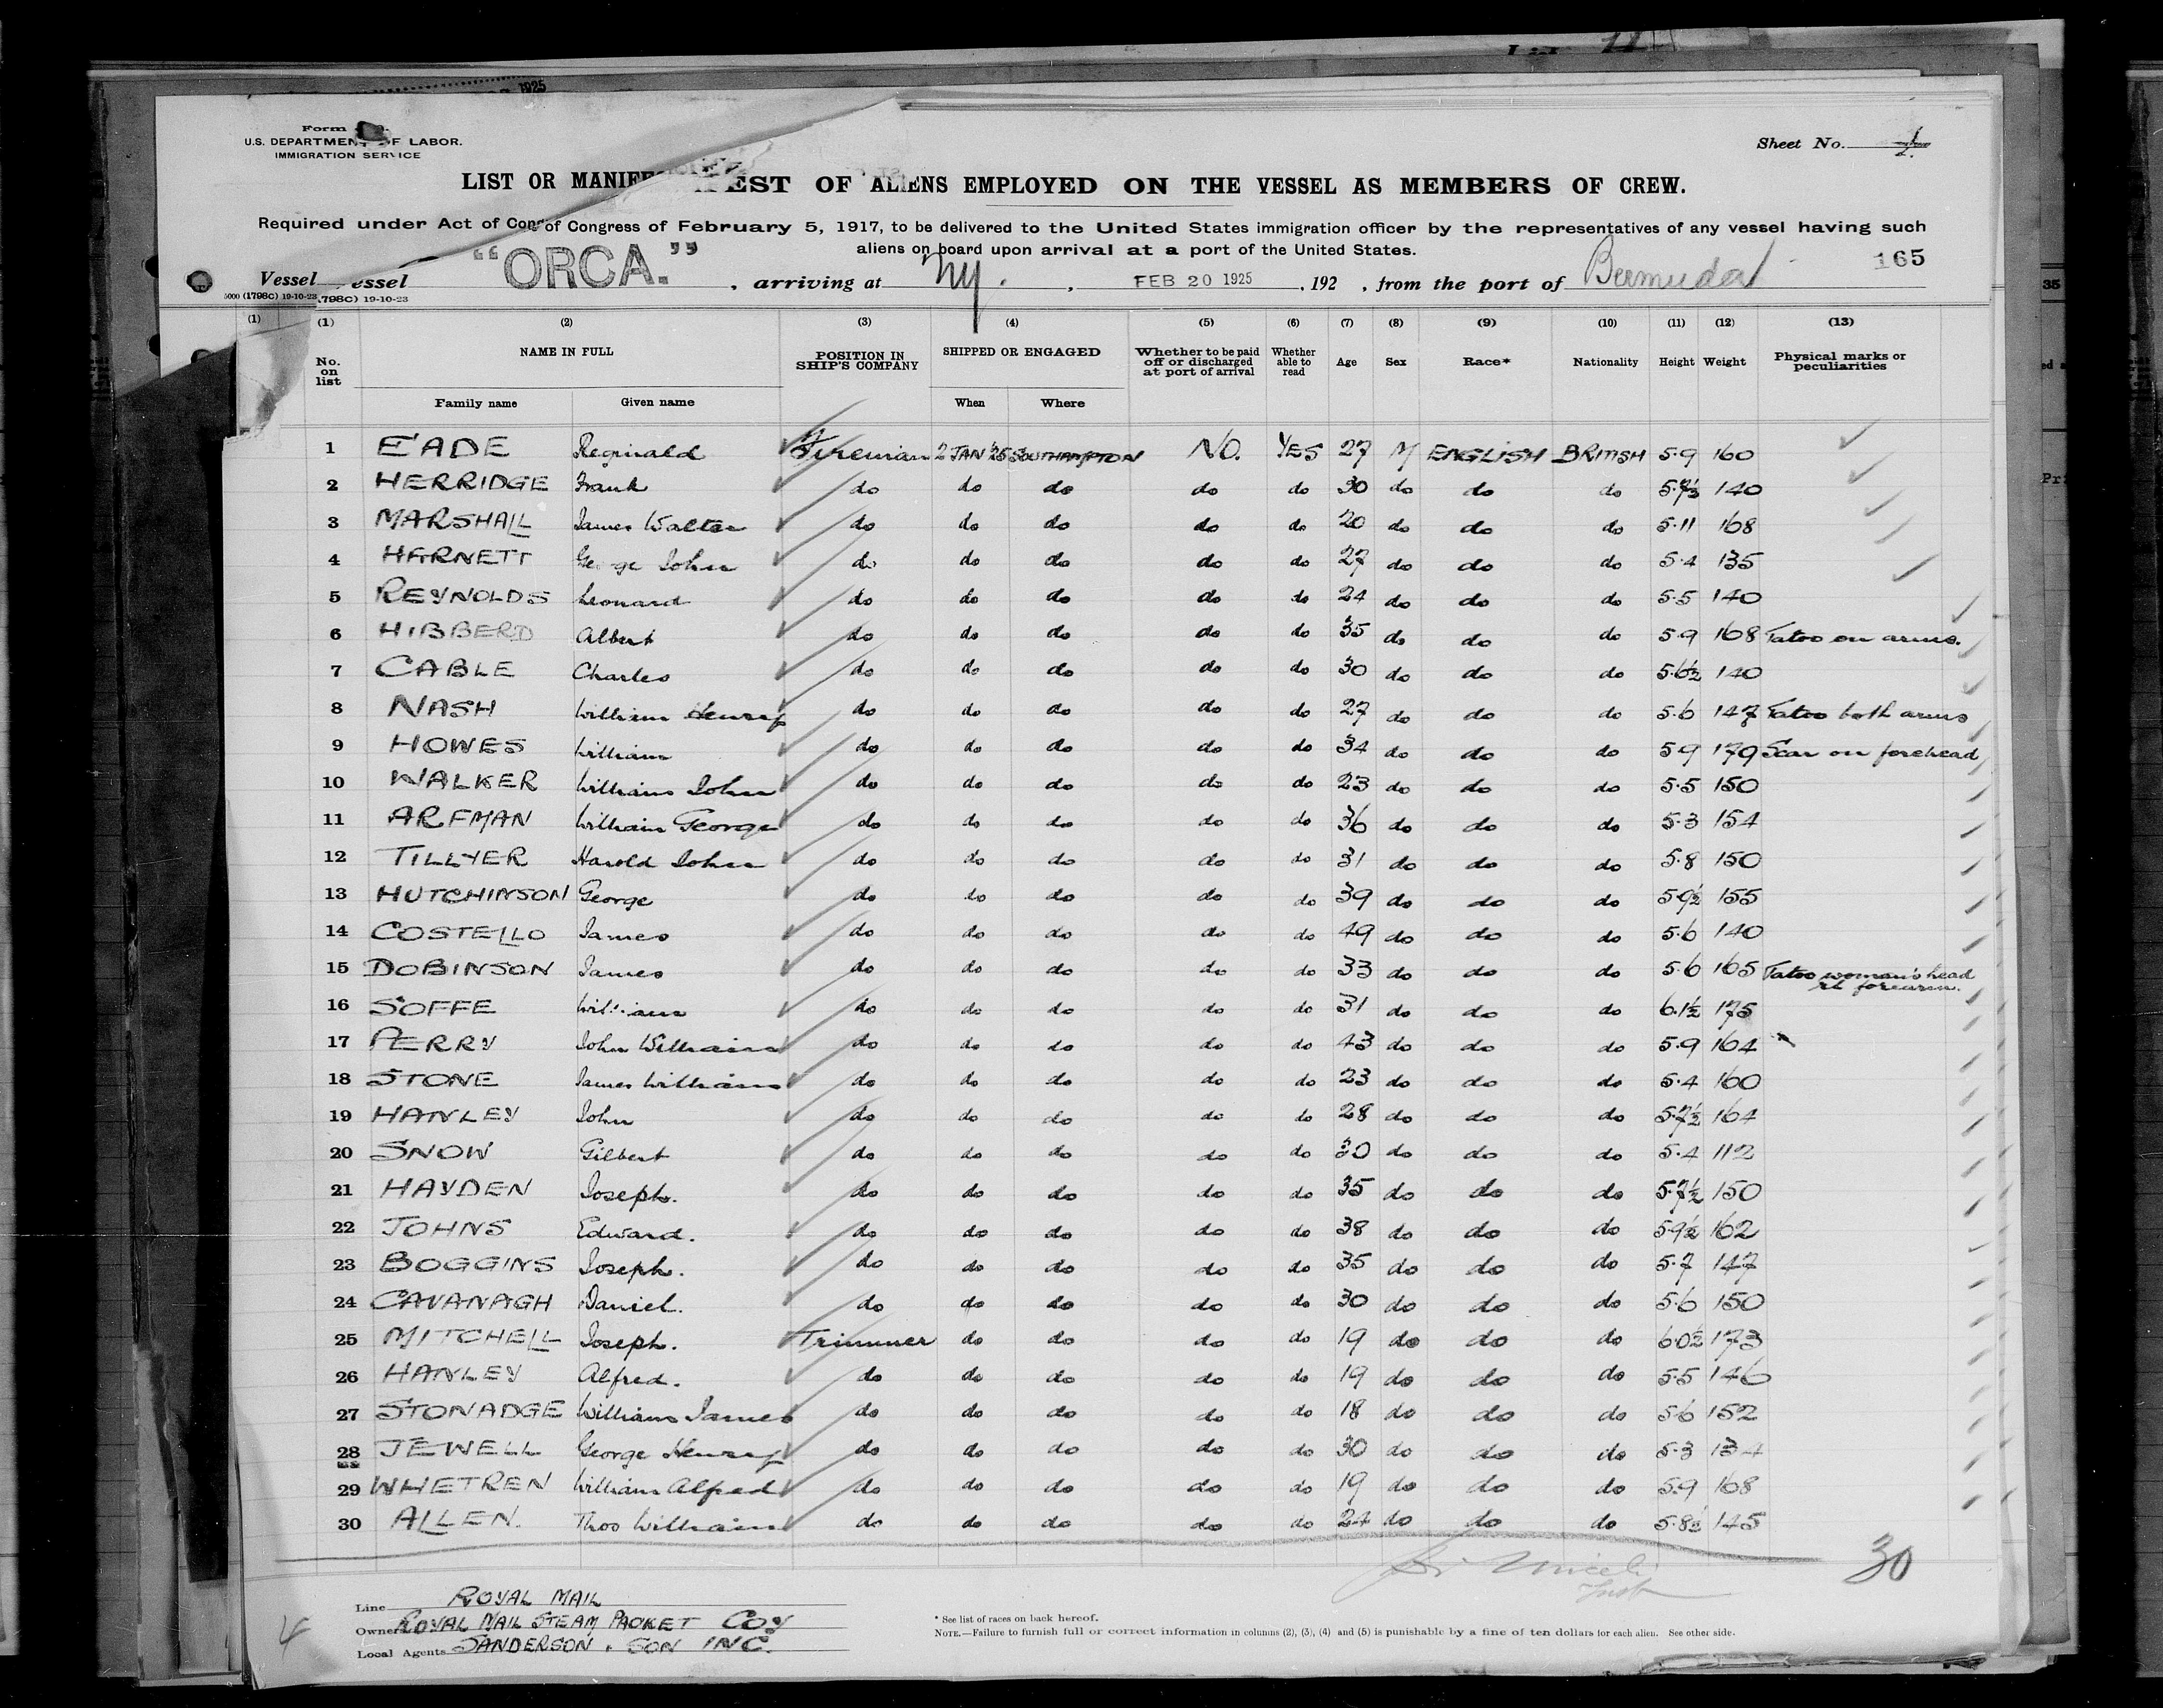 1925
Form
U.S. DEPARTMENT OF LABOR.
IMMIGRATION SERVICE
Sheet No.
LIST OR MANIFEST OF ALIENS EMPLOYED ON THE VESSEL AS MEMBERS OF CREW.
Required under Act of Congress of February 5, 1917, to be delivered to the United States immigration officer by the representatives of any vessel having such
aliens on board upon arrival at a port of the United States.
165
Vessel essel "ORCA." , arriving at NY. , FEB 20 1925 , 192 , from the port of Bermuda
5000 (1798C) 19-10-23 798C) 19-10-23
(1) (1) (2) (3) (4) (5) (6) (7) (8) (9) (10) (11) (12) (13)
No. on list NAME IN FULL POSITION IN SHIP'S COMPANY SHIPPED OR ENGAGED Whether to be paid off or discharged at port of arrival Whether able to read Age Sex Race* Nationality Height Weight Physical marks or peculiarities
Family name Given name When Where
1 EADE Reginald Fireman 2 JAN '25 SOUTHAMPTON NO. YES 27 M ENGLISH BRITISH 5.9 160
2 HERRIDGE Frank do do do do do 30 do do do 5.7½ 140
3 MARSHALL James Walter do do do do do 20 do do do 5.11 168
4 HARNETT George John do do do do do 27 do do do 5.4 135
5 REYNOLDS Leonard do do do do do 24 do do do 5.5 140
6 HIBBERD Albert do do do do do 35 do do do 5.9 168 Tatoo on arms.
7 CABLE Charles do do do do do 30 do do do 5.6½ 140
8 NASH William Henry do do do do do 27 do do do 5.6 147 Tatoo both arms
9 HOWES William do do do do do 34 do do do 5.9 179 Scar on forehead
10 WALKER William John do do do do do 23 do do do 5.5 150
11 ARFMAN William George do do do do do 36 do do do 5.3 154
12 TILLYER Harold John do do do do do 31 do do do 5.8 150
13 HUTCHINSON George do do do do do 39 do do do 5.9½ 155
14 COSTELLO James do do do do do 49 do do do 5.6 140
15 DOBINSON James do do do do do 33 do do do 5.6 165 Tatoo woman's head
rt forearm.
16 SOFFE William do do do do do 31 do do do 6.1½ 175
17 PERRY John William do do do do do 43 do do do 5.9 164
18 STONE James William do do do do do 23 do do do 5.4 160
19 HANLEY John do do do do do 28 do do do 5.7½ 164
20 SNOW Gilbert do do do do do 30 do do do 5.4 112
21 HAYDEN Joseph. do do do do do 35 do do do 5.7½ 150
22 JOHNS Edward. do do do do do 38 do do do 5.9½ 162
23 BOGGINS Joseph. do do do do do 35 do do do 5.7 147
24 CAVANAGH Daniel. do do do do do 30 do do do 5.6 150
25 MITCHELL Joseph. Trimmer do do do do 19 do do do 6.0½ 173
26 HANLEY Alfred. do do do do do 19 do do do 5.5 146
27 STONADGE William James do do do do do 18 do do do 5.6 152
28 JEWELL George Henry do do do do do 30 do do do 5.3 134
29 WHETREN William Alfred do do do do do 19 do do do 5.9 168
30 ALLEN. Thos William do do do do do 24 do do do 5.8½ 145
30
Line ROYAL MAIL
Owner ROYAL MAIL STEAM PACKET COY
Local Agents SANDERSON & SON INC.
* See list of races on back hereof.
NOTE.—Failure to furnish full or correct information in columns (2), (3), (4) and (5) is punishable by a fine of ten dollars for each alien. See other side.